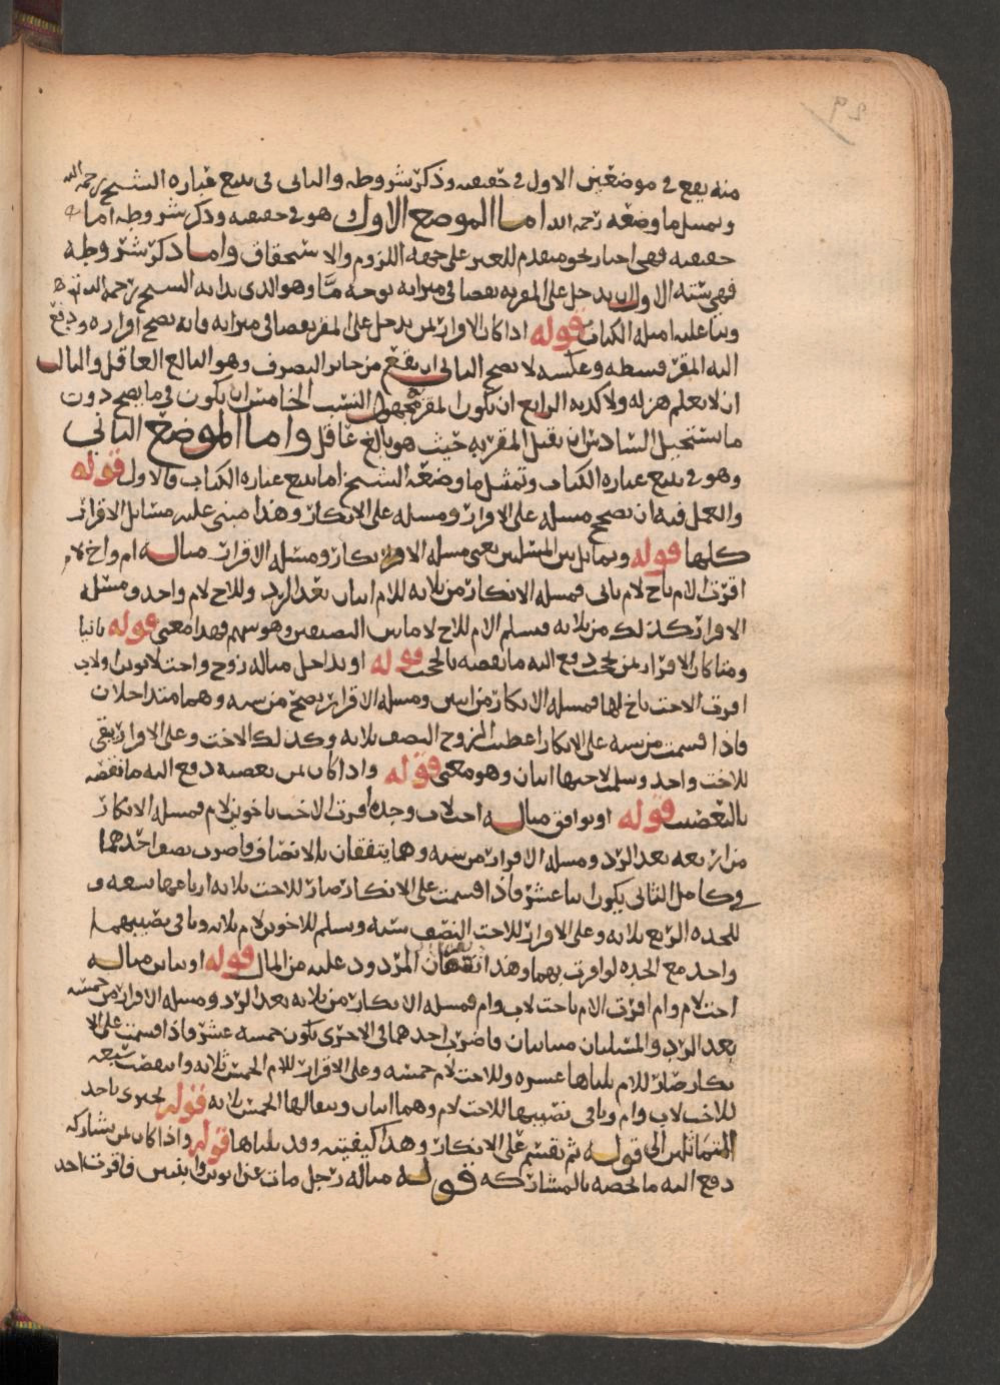 منه يقع في موضعين الاول في حقيقته وذكر شروطه والثاني في تتبع عبارة الشيخ رحمه الله
وتمسل ما وضعه رحمه الله اما الموضع الاول وهو في حقيقته وذكر شروطه اما
حقيقته فهي اخبار نحو متقدم للغير على جهة اللزوم والاستحقاق واما ذكر شروطه
فهي سته الاول ان يدخل على المقر به نقصا في ميراثه بوجه ما وهو الذي بدا به الشيخ رحمه الله
وبنا عليه امثلة الكتاب قوله اذا كان الاقرار لمن يدخل على المقر نقصا في ميراثه فانه يصح اقراره ودفع
اليه المقر قسطه وعكسه لا يصح الثاني ان يقع من جايز التصرف وهو البالغ العاقل والثالث
ان لا يعلم هزله ولا كذبه الرابع ان يكون المقر مجهول النسب الخامس ان يكون في ما يصح دون
ما يستحيل السادس ان يقبل المقر به حيث هو بالغ عاقل واما الموضع الثاني
وهو في تتبع عبارة الكتاب وتمثيل ما وضعه الشيخ اما تتبع عبارة الكتاب فالاول قوله
والعمل فيه ان تصحح مسلة على الاقرار ومسلة على الانكار وهذا مبني عليه مسايل الاقرار
كلها قوله وتماثل بين المسلتين يعني مسلة الانكار ومسلة الاقرار مثاله ام واخ لام
اقرت الام باخ لام ثاني فمسلة الانكار من ثلاثة للام اثنان بعد الرد وللاخ لام واحد ومسلة
الاقرار كذلك من ثلاثة فسلم الام للاخ لام ما بين النصيبين وهو سهم فهذا معنى قوله ثانيا
ومتا كان الاقرار لمن يحجب دفع اليه ما نقصه بالحجب قوله او تداخل مثاله زوج واخت لابوين او لاب
اقرت الاخت باخ لها فمسلة الانكار من اثنين ومسلة الاقرار تصح من سته وهما متداخلان
فاذا قسمت من سته على الانكار اعطيت الزوج النصف ثلاثة وكذلك الاخت وعلى الاقرار يبقى
للاخت واحد وسلمت لاخيها اثنان وهو معنى قوله واذا كان لمن يعصبه دفع اليه ما نقصه
بالتعصيب قوله او توافق مثاله اخت لاب وجده اقرت الاخت باخوين لام فمسلة الانكار
من اربعه بعد الرد ومسلة الاقرار من سته وهما يتفقان بالانصاف فاضرب نصف احدهما
في كامل الثاني يكون اثنا عشر فاذا قسمت على الانكار صار للاخت ثلاثة ارباعها تسعه و
للجده الربع ثلاثه وعلى الاقرار للاخت النصف سته وتسلم للاخوين لام ثلاثه وباقي نصيبهما
واحد مع الجده لو اقرت بهما وهذا نقصان المردود عليه من المال قوله او تباين مثاله
اخت لام وام اقرت الام باخت لاب وام فمسلة الانكار من ثلاثة بعد الرد ومسلة الاقرار من خمسه
بعد الرد والمسلتان متباينان فاضرب احدهما في الاخرى يكون خمسه عشر فاذا قسمت على الا
نكار صار للام ثلثاها عشره وللاخت لام خمسه وعلى الاقرار للام الخمس ثلاثه وانقصت سبعه
للاخت لاب وام وباقي نصيبها للاخت لام وهما اثنان وتمالها الخمس ثلاثه قوله تجتزي باحد
المتماثلين الى قوله ثم تقسم على الانكار وهذا كيفيته وقد بيناها قوله واذا كان لمن يشاركه
دفع اليه ما يخصه بالمشاركه قوله مثاله رجل مات عن ابوين وابنتين فاقرت احد